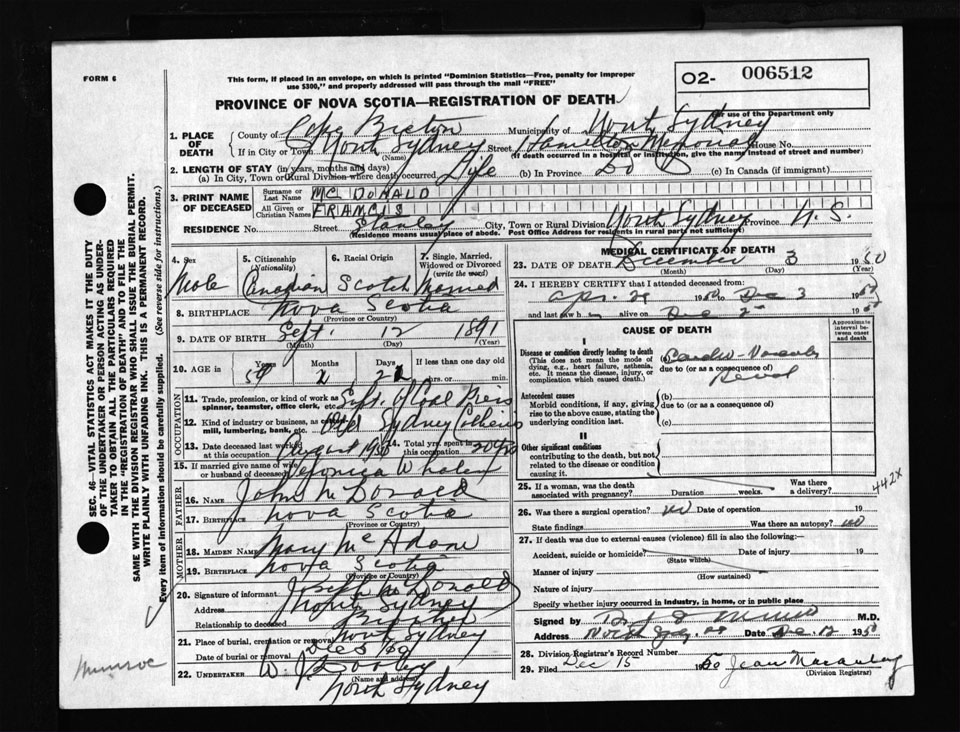 FORM 6
This form, if placed in an envelope, on which is printed "Dominion Statistics—Free, penalty for improper
use $300," and properly addressed will pass through the mail "FREE"
O2- 006512
For use of the Department only
PROVINCE OF NOVA SCOTIA—REGISTRATION OF DEATH
1. PLACE OF DEATH
County of Cape Breton Municipality of North Sydney
If in City or Town North Sydney Street Hamilton Memorial House No.
(Name) (If death occurred in a hospital or institution, give the name instead of street and number)
2. LENGTH OF STAY (in years, months and days)
(a) In City, Town or Rural Division where death occurred Life (b) In Province Do (c) In Canada (if immigrant)
3. PRINT NAME OF DECEASED
Surname or Last Name MC DONALD
All Given or Christian Names FRANCIS
RESIDENCE No. Street Stanley City, Town or Rural Division North Sydney Province N.S.
(Residence means usual place of abode. Post Office Address for residents in rural parts not sufficient)
SEC. 46—VITAL STATISTICS ACT MAKES IT THE DUTY
OF THE UNDERTAKER OR PERSON ACTING AS UNDER-
TAKER TO OBTAIN ALL THE PARTICULARS REQUIRED
IN THE "REGISTRATION OF DEATH" AND TO FILE THE
SAME WITH THE DIVISION REGISTRAR WHO SHALL ISSUE THE BURIAL PERMIT.
WRITE PLAINLY WITH UNFADING INK. THIS IS A PERMANENT RECORD.
Every item of information should be carefully supplied. (See reverse side for instructions.)
4. Sex Male
5. Citizenship (Nationality) Canadian
6. Racial Origin Scotch
7. Single, Married, Widowed or Divorced (write the word) Married
8. BIRTHPLACE Nova Scotia
(Province or Country)
9. DATE OF BIRTH Sept. 12 1891
(Month) (Day) (Year)
10. AGE in Years Months Days If less than one day old
59 2 21 hrs. or min.
OCCUPATION
11. Trade, profession, or kind of work as
spinner, teamster, office clerk, etc. Supt. of Coal Piers
12. Kind of industry or business, as
mill, lumbering, bank, etc. Old Sydney Colleries
13. Date deceased last worked
at this occupation August 1950
14. Total yrs. spent in
this occupation 20 yrs
15. If married give name of wife
or husband of deceased Veronica Whalen
FATHER
16. NAME John McDonald
17. BIRTHPLACE Nova Scotia
(Province or Country)
MOTHER
18. MAIDEN NAME Mary McAdam
19. BIRTHPLACE Nova Scotia
(Province or Country)
20. Signature of informant Joseph McDonald
Address North Sydney
Relationship to deceased Brother
21. Place of burial, cremation or removal North Sydney
Date of burial or removal Dec 5
22. UNDERTAKER W. J. Dooley
(Name and address)
North Sydney
Munroe
MEDICAL CERTIFICATE OF DEATH
23. DATE OF DEATH December 3 1950
(Month) (Day) (Year)
24. I HEREBY CERTIFY that I attended deceased from:
Apr. 1950 to Dec 3 1950
and last saw him alive on Dec 2 1950
CAUSE OF DEATH
Approximate interval between onset and death
I
Disease or condition directly leading to death
(This does not mean the mode of
dying, e.g., heart failure, asthenia,
etc. It means the disease, injury, or
complication which caused death.)
(a) Cardio-Vascular
due to (or as a consequence of)
Renal
Antecedent causes
Morbid conditions, if any, giving
rise to the above cause, stating the
underlying condition last.
(b)
due to (or as a consequence of)
(c)
II
Other significant conditions
contributing to the death, but not
related to the disease or condition
causing it.
442X
25. If a woman, was the death
associated with pregnancy? Duration weeks. Was there a delivery?
26. Was there a surgical operation? No Date of operation 19
State findings Was there an autopsy? No
27. If death was due to external causes (violence) fill in also the following:—
Accident, suicide or homicide? Date of injury 19
(State which)
Manner of injury
(How sustained)
Nature of injury
Specify whether injury occurred in industry, in home, or in public place
Signed by M.D.
Address North Syd. Date Dec. 12 1950
28. Division Registrar's Record Number
29. Filed Dec 15 1950 Jean Macaulay
(Division Registrar)